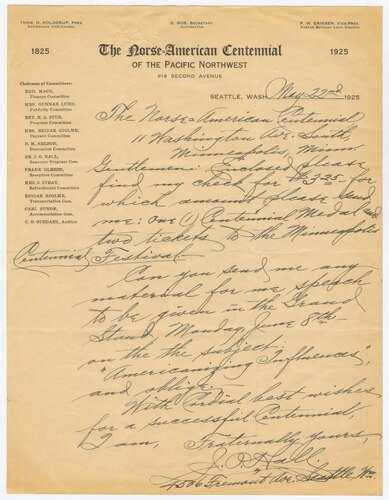 THOS. H. KOLDERUP, PRES.
NORWEGIAN VICE-CONSUL
O. MOE, SECRETARY
CONTRACTOR
P. W. ERIKSEN, VICE-PRES.
PASTOR BETHANY LUTH. CHURCH
1825 The Norse-American Centennial 1925
OF THE PACIFIC NORTHWEST
919 SECOND AVENUE
SEATTLE, WASH. May 22nd 1925
Chairmen of Committees:
EGIL MACK,
Finance Committee
MRS. GUNNAR LUND,
Publicity Committee
REV. H. A. STUB,
Program Committee
MRS. REIDAR GJOLME,
Pageant Committee
N. M. NELSON,
Executive Committee
DR. J. O. HALL
Executive Program Com.
FRANK OLESON,
Reception Committee
MRS. S. STRAY,
Refreshment Committee
REIDAR GJOLME,
Transportation Com.
CARL SUNDE,
Accommodation Com.
C. O. OUSDAHL, Auditor
The Norse-American Centennial,
11 Washington Ave. South,
Minneapolis, Minn.
Gentlemen: Enclosed please
find my check for $3.25 for
which amount please send
me: One (1) Centennial Medal and
two tickets to the Minneapolis
Centennial Festival.
Can you send me any
material for me speech
to be given in the Grand
Stand Monday, June 8th
on the the subject:
"Americanizing Influences",
and oblige.
With Cordial best wishes
for a successful Centennial
I am, Fraternally yours,
J. O. Hall.
4506 Fremont Ave. Seattle, Wn